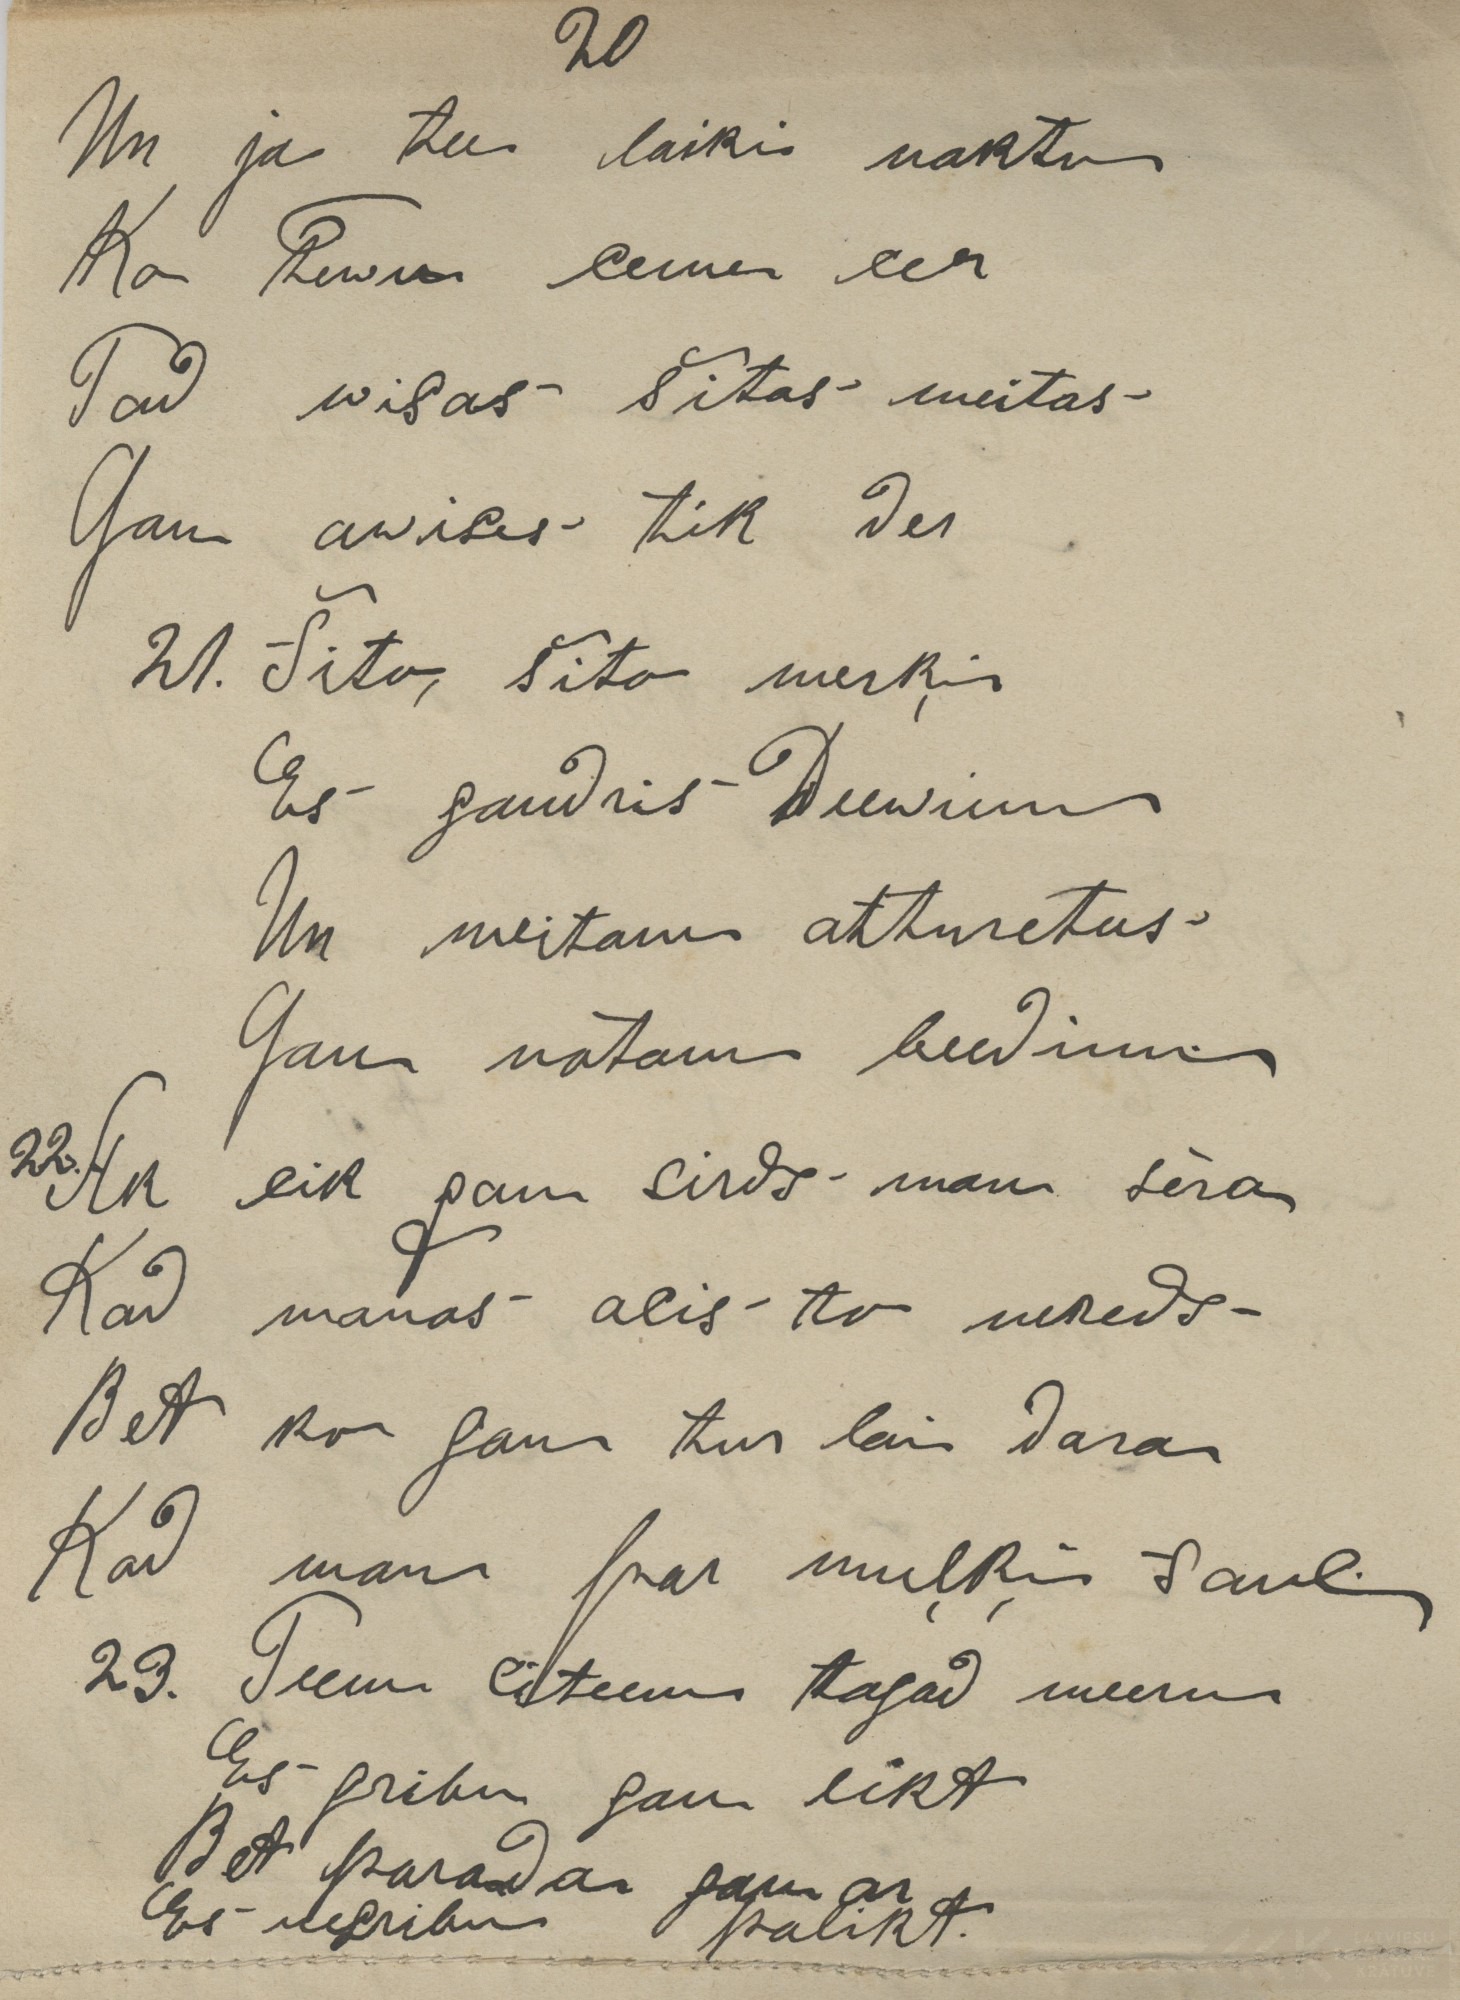 20
Un ja tee laiki naktu
Ko Tewu ceme eer
Tad wisas šitas meitas
Gan awises tik der
21. Šito, šito merķi
Es gaudris Deewinu
Un meitam atturetees
Gan nōtam beedinu
22. Ak eik gan sirds man sēra
Kad manas acis to neredz
Bet ko gan tur lai dara
Kad man par muļķi sauc
23. Teem citeem tagad meeru
Es gribu gan likt
Bet parada gan ar
Es negribu palikt.